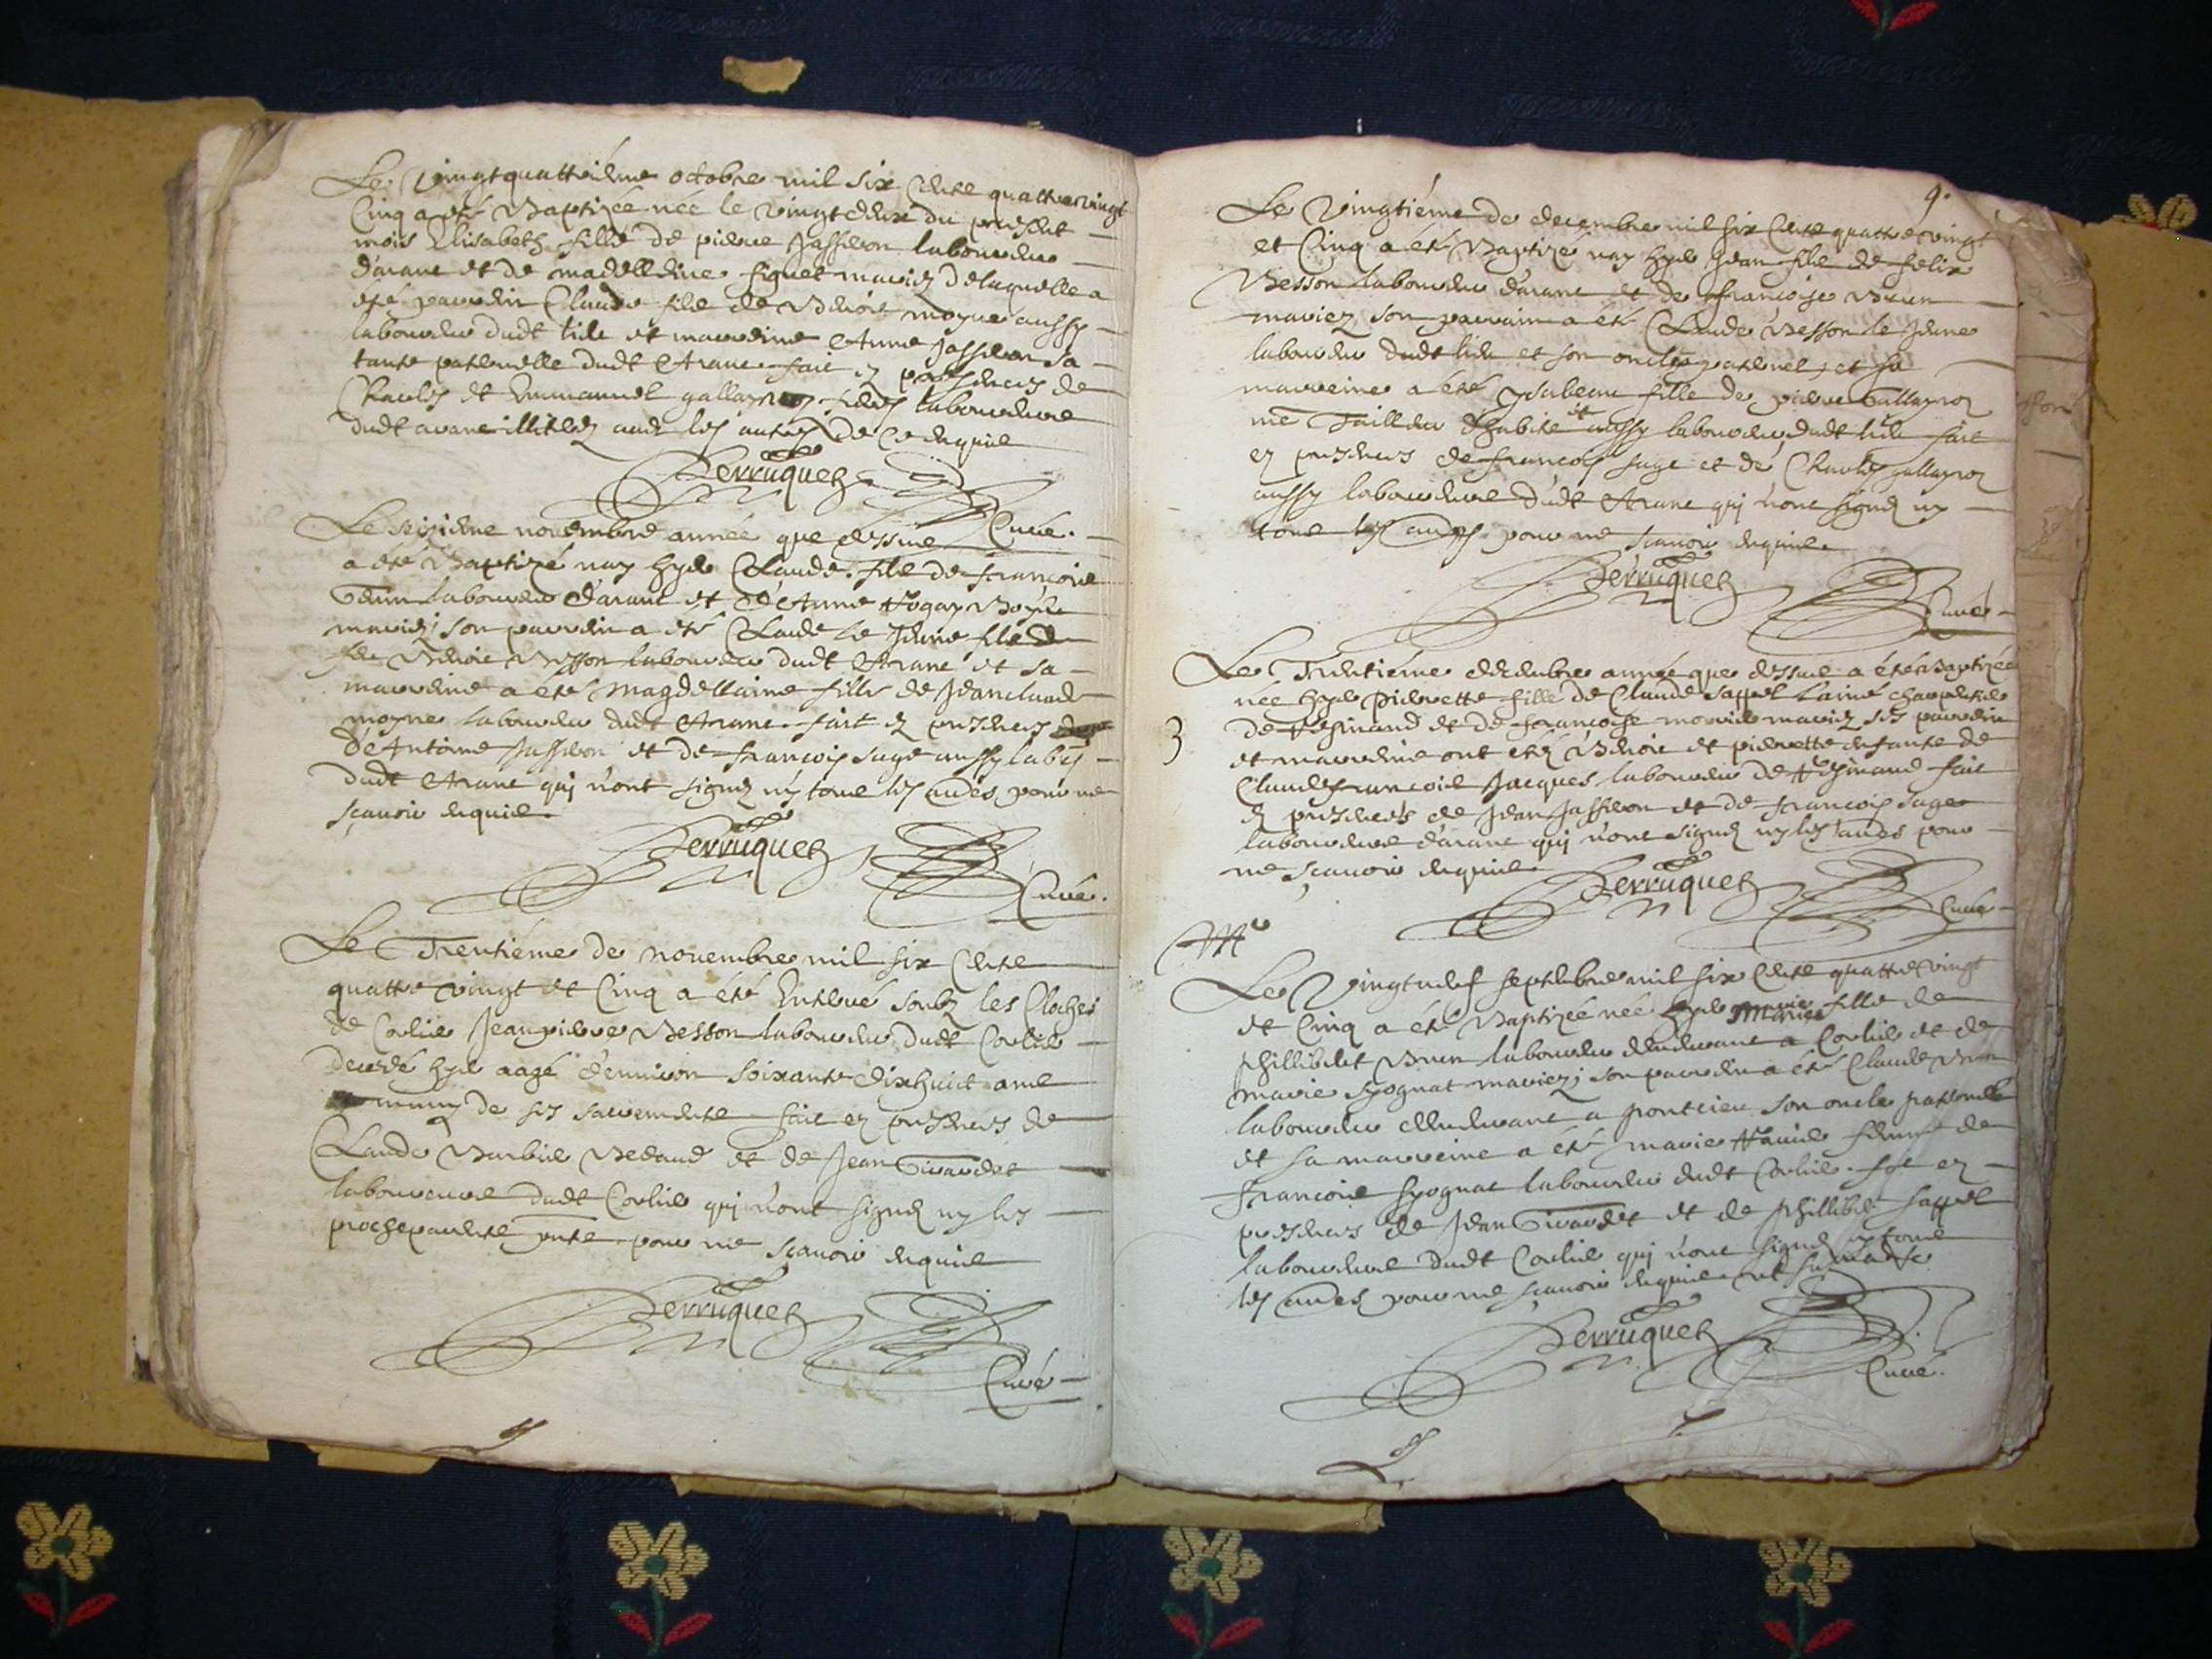 Le vingtquattriéme octobre mil six Cents quattrevingt
Cinq a eté Baptizée née le vingtdeux du present
mois Elisabeth fille de pierre Jasseron laboureur
d'aranc et de madelleine figuet mariez delaquelle a
été parrein Claude fils de Benoit moyne aussy
laboureur dudt lieu et marreine Anne Jasseron sa
tante paternelle dudt Aranc fait ez presences de
Charles et Emmanuel gallayroz freres laboureurs
dudt aranc illiterez avec les autres de ce enquis
Perruquet
Curé.
Le seizieme novembre année que dessus
a eté Baptizé nay hyer Claude fils de françois
laboureur d'aranc et d'Anne
mariez; son parrein a eté Claude le Jeune fils de
feu Benoit Besson laboureur dudt Aranc et sa
marreine a eté magdellaine fille de Jeanclaude
moyne laboureur dudt Aranc fait ez presences
d'Antoine Jasseron et de françois suge aussy labrs
dudt Aranc qui n'ont signez ny tous les autres pour ne
sçavoir enquis
Perruquet
Curé.
Le Trentiéme de novembre mil six Cents
quattre vingt et Cinq a eté Enterré soubz les Cloches
de Corlier Jeanpierre Besson laboureur dudt Corlier
decedé hyer aagé d'environ soixante dixhuict ans
muny de ses sacrements fait ez presences de
Claude Barbier Bedaud et de Jean Girardet
laboureurs dudt Corlier qui n'ont signez ny les
procheparents pnts pour ne sçavoir enquis
Perruquet
Curé
9.
Le Vingtiéme de decembre mil six Cents quattrevingt
et Cinq a eté Baptizé nay hyer Jean fils de felix
Besson laboureur d'aranc et de françoise Brun
mariez, son parrain a eté Claude Besson le Jeune
laboureur dudt lieu et son oncle paternel, et sa
marreine a eté ysabeau fille de pierre Gallayroz
me Tailleur d'habits et aussy laboureur dudt lieu fait
ez presences de françois suge et de Charles gallayroz
aussy laboureurs dudt Aranc qui n'ont signez ny
tous les autres pour ne sçavoir enquis.
Perruquet
Curé
Le Trentiéme decembre année que dessus a eté Baptizée
née hyer Pierrette fille de Claude sappel l'ainé charpentier
de et de françoise mariez ses parrein
et marreine ont etez Benoit et pierrette enfants de
Claudefrancois Jacques laboureur de fait
ez presences de Jean Jasseron et de françois suge
laboureurs d'aranc qui n'ont signez ny les autres pour
ne sçavoir enquis
Perruquet
Curé
Le Vingtneuf septembre mil six Cents quattrevingt
et Cinq a eté Baptizée née hyer Marie fille de
phillibert Brun laboureur demeurant a Corlier et de
marie spognat mariez; son parrein a eté Claude Brun
laboureur demeurant a pontcieu son oncle paternel
et sa marreine a eté marie femme de
francois spognat laboureur dudt Corlier. fait ez
presences de Jean Girardet et de phillibert sappel
laboureurs dudt Corlier qui n'ont signez ny tous
les autres pour ne sçavoir enquis
Perruquet
Curé.